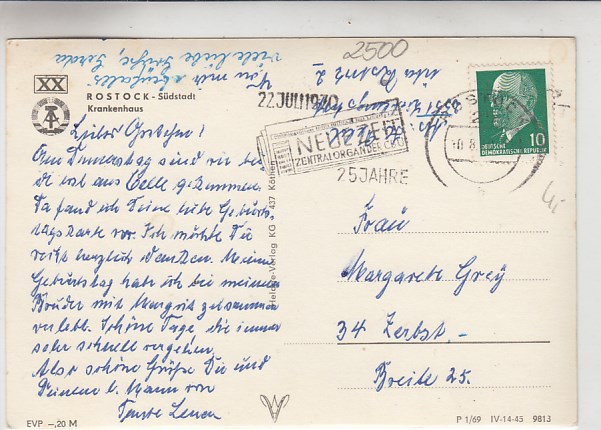 XX
ROSTOCK - Südstadt
Krankenhaus
Liebes Gretchen!
Am Donnerstag sind wir bei
de
aus Celle gekommen.
Da fand ich Deine liebe Geburts-
tagskarte vor. Ich möchte Dir
recht herzlich danken. Meinen
Geburtstag habe ich bei meinem
Bruder mit Margrit zusammen
verlebt. Schöne Tage, die immer
sehr schnell vergehen.
Also schöne Grüße Dir und
Deinem l. Mann von
Tante
EVP -,20 M
Von mir ebenfalls
viele liebe Grüße, Gerda
Verlag KG 437 Köthen
2500
22.JULI 1970
NEUE ZEIT
ZENTRALORGAN DER CDU
25 JAHRE
10
DEUTSCHE
DEMOKRATISCHE REPUBLIK
Frau
Margarete Grey
34 Zerbst.-
Breite 25.
P 1/69 IV-14-45 9813